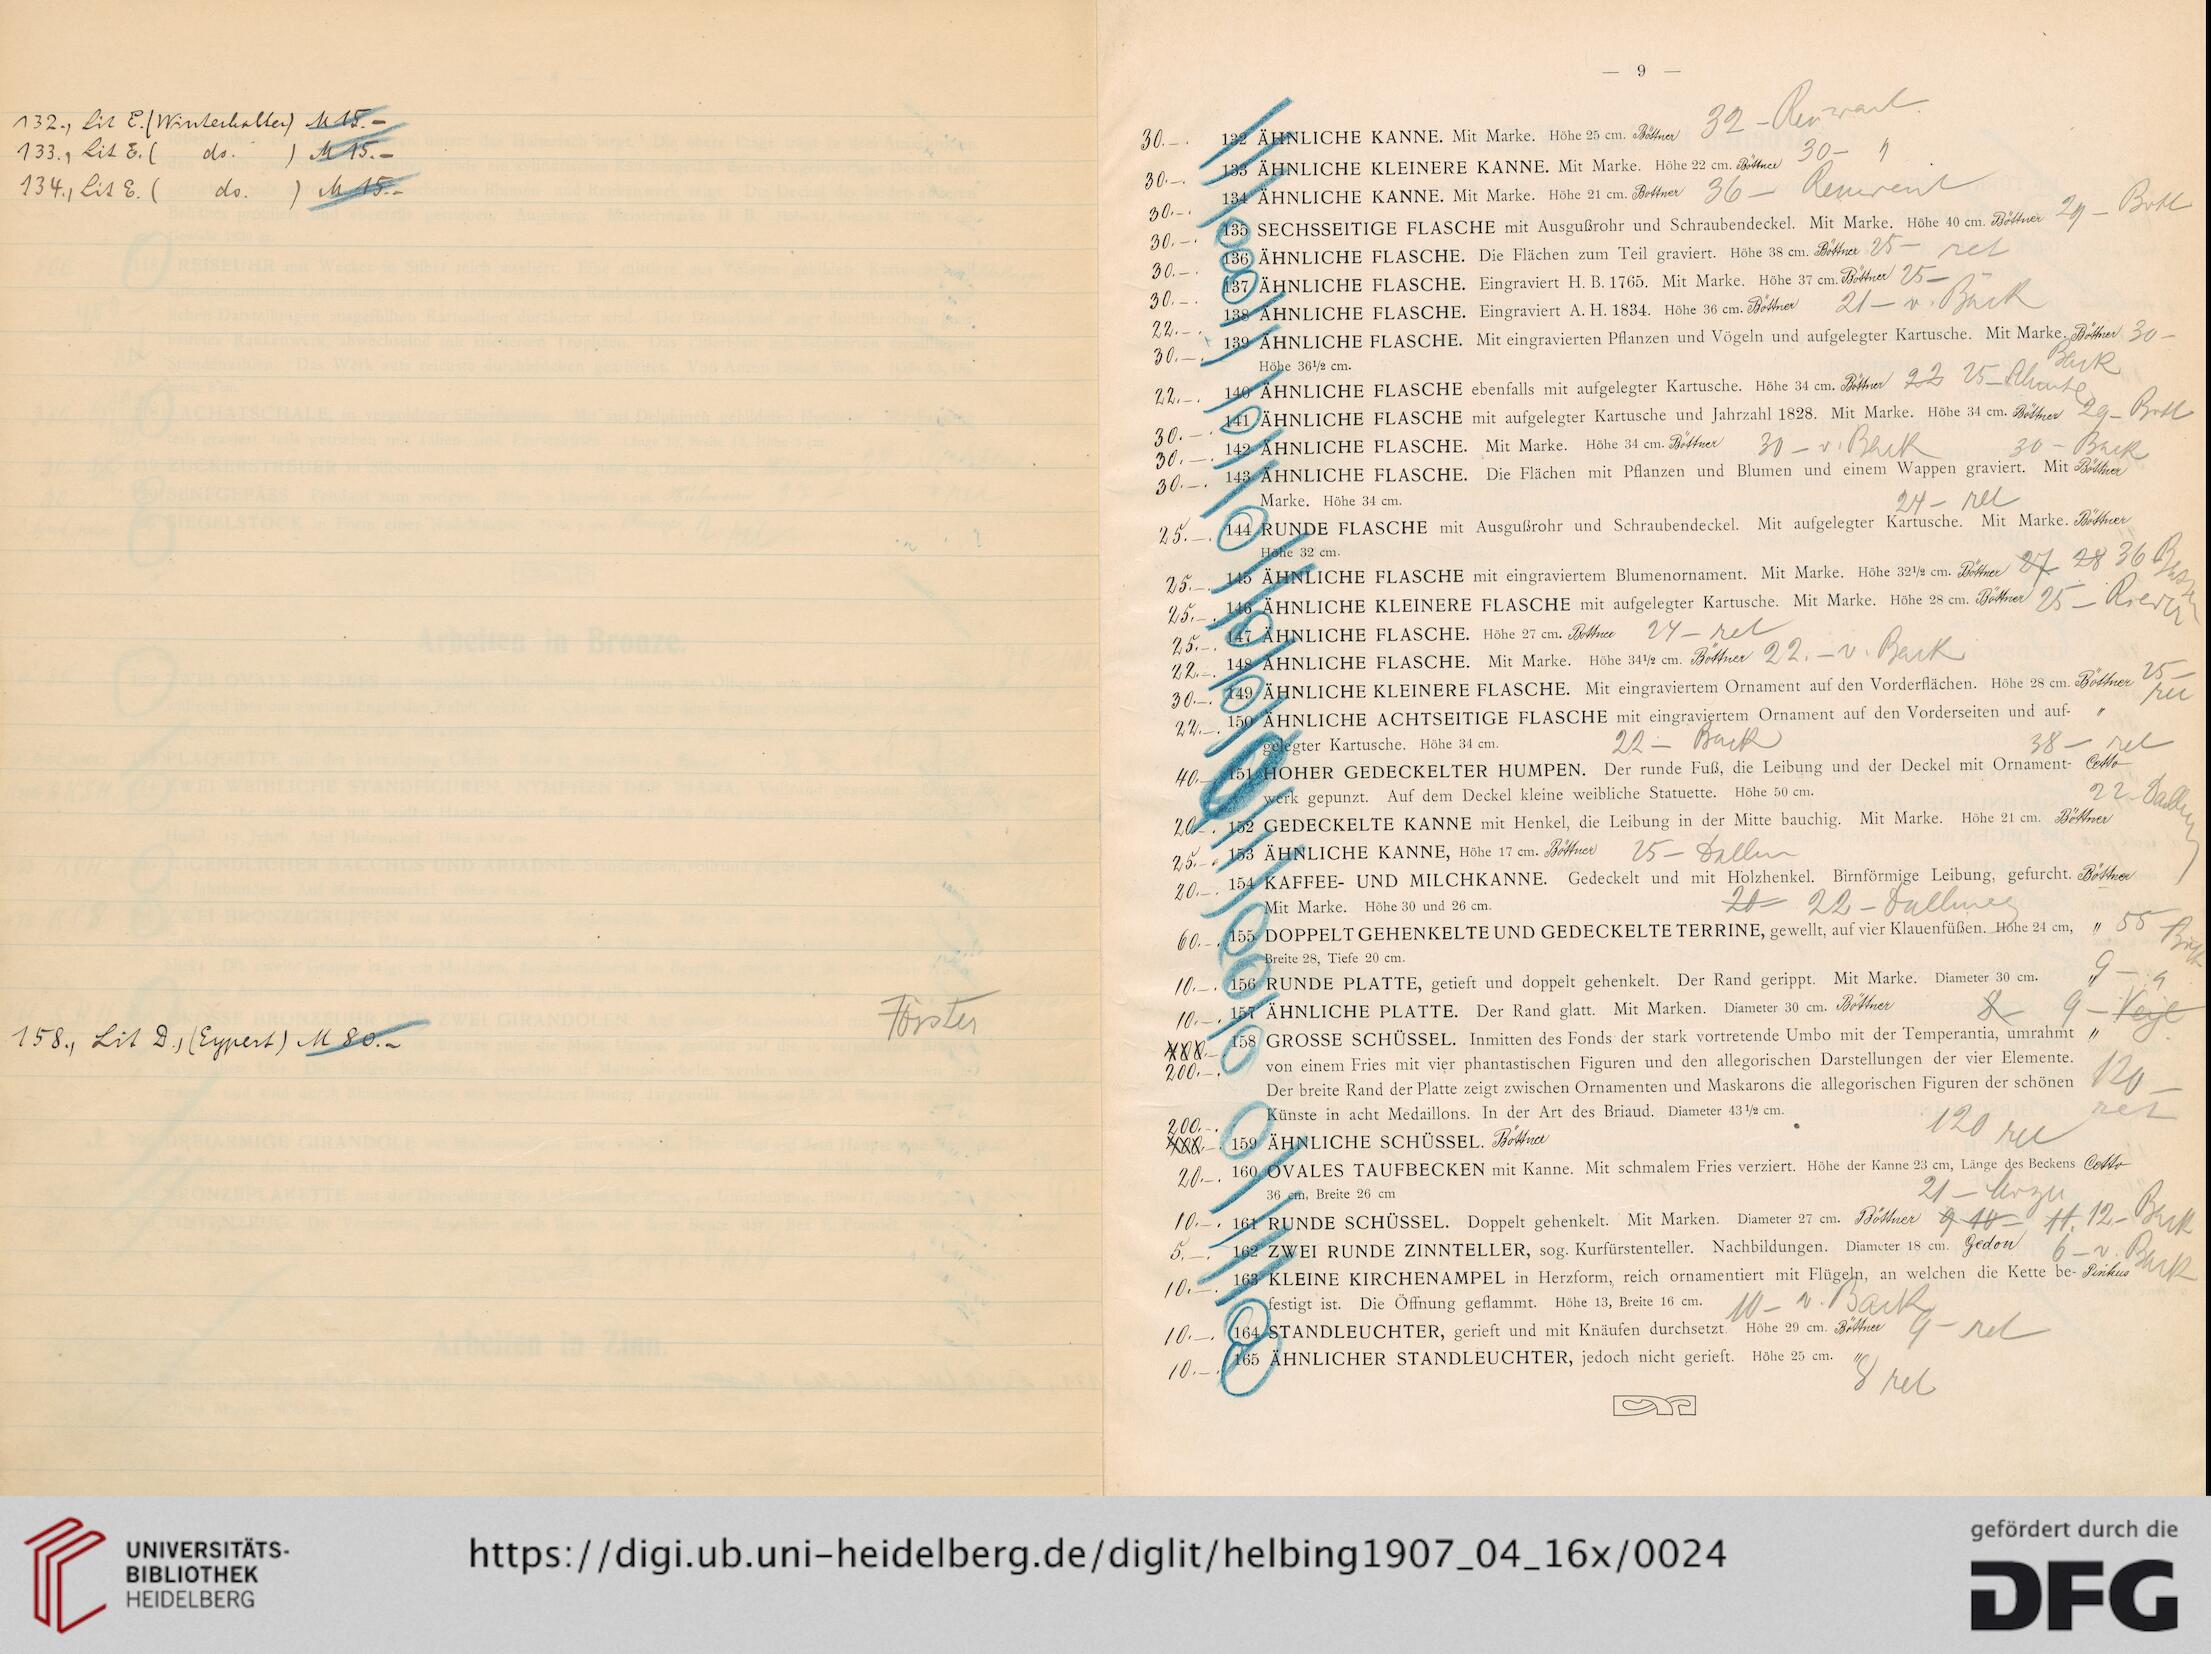 132., Lit E. (Winterhalter) M 15.-
133., Lit E. ( do. ) M 15.-
134., Lit E. ( do. ) M 15.-
158., Lit D., (Eypert) M 80.-
Förster
— 9 —
30.-. 132 ÄHNLICHE KANNE. Mit Marke. Höhe 25 cm. Böttner 32 -
30.-. 133 ÄHNLICHE KLEINERE KANNE. Mit Marke. Höhe 22 cm. Böttner 30 - "
30.-. 134 ÄHNLICHE KANNE. Mit Marke. Höhe 21 cm. Böttner 36 -
30.-. 135 SECHSSEITIGE FLASCHE mit Ausgußrohr und Schraubendeckel. Mit Marke. Höhe 40 cm. Böttner 29 - Bott
30.-. 136 ÄHNLICHE FLASCHE. Die Flächen zum Teil graviert. Höhe 38 cm. Böttner 25 - ret
30.-. 137 ÄHNLICHE FLASCHE. Eingraviert H. B. 1765. Mit Marke. Höhe 37 cm. Böttner 25 -
22.-. 138 ÄHNLICHE FLASCHE. Eingraviert A. H. 1834. Höhe 36 cm. Böttner 21 - v. Back
30.-. 139 ÄHNLICHE FLASCHE. Mit eingravierten Pflanzen und Vögeln und aufgelegter Kartusche. Mit Marke. Böttner 30 -
Höhe 36½ cm. Back
22.-. 140 ÄHNLICHE FLASCHE ebenfalls mit aufgelegter Kartusche. Höhe 34 cm. Böttner 22 25 -
30.-. 141 ÄHNLICHE FLASCHE mit aufgelegter Kartusche und Jahrzahl 1828. Mit Marke. Höhe 34 cm. Böttner 29 - Bott
30.-. 142 ÄHNLICHE FLASCHE. Mit Marke. Höhe 34 cm. Böttner 30 - v. Back 30 - Back
30.-. 143 ÄHNLICHE FLASCHE. Die Flächen mit Pflanzen und Blumen und einem Wappen graviert. Mit Böttner
Marke. Höhe 34 cm. 24 - ret
25.-. 144 RUNDE FLASCHE mit Ausgußrohr und Schraubendeckel. Mit aufgelegter Kartusche. Mit Marke. Böttner
Höhe 32 cm.
25.-. 145 ÄHNLICHE FLASCHE mit eingraviertem Blumenornament. Mit Marke. Höhe 32½ cm. Böttner 27 28 36
25.-. 146 ÄHNLICHE KLEINERE FLASCHE mit aufgelegter Kartusche. Mit Marke. Höhe 28 cm. Böttner 25 -
25.-. 147 ÄHNLICHE FLASCHE. Höhe 27 cm. Böttner 24 - ret
22.-. 148 ÄHNLICHE FLASCHE. Mit Marke. Höhe 34½ cm. Böttner 22. - v. Back
30.-. 149 ÄHNLICHE KLEINERE FLASCHE. Mit eingraviertem Ornament auf den Vorderflächen. Höhe 28 cm. Böttner 25 - ret
22.-. 150 ÄHNLICHE ACHTSEITIGE FLASCHE mit eingraviertem Ornament auf den Vorderseiten und auf- "
gelegter Kartusche. Höhe 34 cm. 22 - Back 38 - ret
40.-. 151 HOHER GEDECKELTER HUMPEN. Der runde Fuß, die Leibung und der Deckel mit Ornament- Cetto
werk gepunzt. Auf dem Deckel kleine weibliche Statuette. Höhe 50 cm. 22 -
20.-. 152 GEDECKELTE KANNE mit Henkel, die Leibung in der Mitte bauchig. Mit Marke. Höhe 21 cm. Böttner
25.-. 153 ÄHNLICHE KANNE, Höhe 17 cm. Böttner 25 -
20.-. 154 KAFFEE- UND MILCHKANNE. Gedeckelt und mit Holzhenkel. Birnförmige Leibung, gefurcht. Böttner
Mit Marke. Höhe 30 und 26 cm. 20 22 -
60.-. 155 DOPPELT GEHENKELTE UND GEDECKELTE TERRINE, gewellt, auf vier Klauenfüßen. Höhe 24 cm, " 55
Breite 28, Tiefe 20 cm.
10.-. 156 RUNDE PLATTE, getieft und doppelt gehenkelt. Der Rand gerippt. Mit Marke. Diameter 30 cm. " 9 -
10.-. 157 ÄHNLICHE PLATTE. Der Rand glatt. Mit Marken. Diameter 30 cm. Böttner 8 9 -
200.-. 158 GROSSE SCHÜSSEL. Inmitten des Fonds der stark vortretende Umbo mit der Temperantia, umrahmt "
von einem Fries mit vier phantastischen Figuren und den allegorischen Darstellungen der vier Elemente.
Der breite Rand der Platte zeigt zwischen Ornamenten und Maskarons die allegorischen Figuren der schönen 120 -
Künste in acht Medaillons. In der Art des Briaud. Diameter 43½ cm. ret
200.-. 159 ÄHNLICHE SCHÜSSEL. Böttner 120 ret
20.-. 160 OVALES TAUFBECKEN mit Kanne. Mit schmalem Fries verziert. Höhe der Kanne 23 cm, Länge des Beckens Cetto
36 cm, Breite 26 cm 21 -
10.-. 161 RUNDE SCHÜSSEL. Doppelt gehenkelt. Mit Marken. Diameter 27 cm. Böttner 9 10 - 11. 12 - Back
5.-. 162 ZWEI RUNDE ZINNTELLER, sog. Kurfürstenteller. Nachbildungen. Diameter 18 cm. Gedon 6 - v. Back
10.-. 163 KLEINE KIRCHENAMPEL in Herzform, reich ornamentiert mit Flügeln, an welchen die Kette be- Pinkus
festigt ist. Die Öffnung geflammt. Höhe 13, Breite 16 cm. 10 - v. Back
10.-. 164 STANDLEUCHTER, gerieft und mit Knäufen durchsetzt. Höhe 29 cm. Böttner 9 - ret
10.-. 165 ÄHNLICHER STANDLEUCHTER, jedoch nicht gerieft. Höhe 25 cm. " 8 ret
UNIVERSITÄTS-
BIBLIOTHEK
HEIDELBERG
https://digi.ub.uni-heidelberg.de/diglit/helbing1907_04_16x/0024
gefördert durch die
DFG